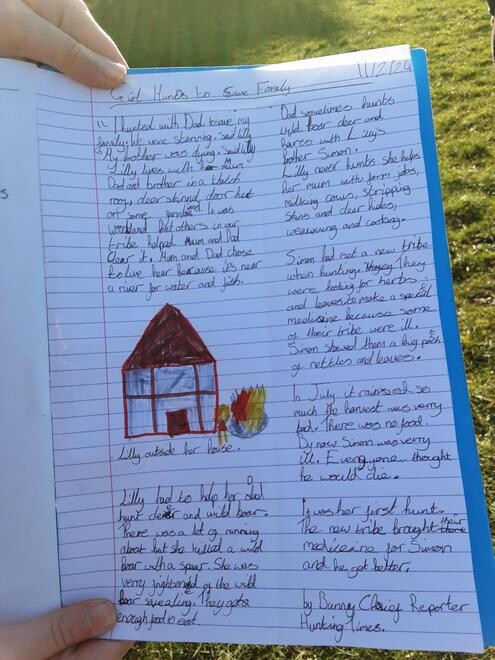 11/2/24
Girl Hunts to Save Family
"I hunted with Dad to save my
family. We were starving. said lilly
"My brother was dying. said lilly
Lilly lives with her Mum
Dad and brother in a thatch
roof, deer skinned door hut
on some land. It was
woodland but others in our
tribe helped Mum and Dad
clear it. Mum and Dad chose
to live hear because it's near
a river for water and fish.
Lilly outside her house.
Lilly had to help her dad
hunt deer and wild boar.
There was a lot of running
about but she killed a wild
boar with a spear. She was
verry frightened of the wild
boar squealing. They gots
enough food to eat.
Dad sometimes hunts
wild boar deer and
hares with Lillys
bother Simon.
Lilly never hunts she helps
her mum with farm jobs,
milking cows, stripping
skins and deer hides,
weavuing and cooking.
Simon had met a new tribe
when hunting. They
were looking for herbs
and leaves to make a special
medisine because some
of their tribe were ill.
Simon showed them a big patch
of nettles and leaves.
In July it rainsed so
much the harvest was verry
bad. There was no food.
By now Simon was verry
ill. Everyone thought
he would die.
It was her first hunt.
The new tribe brought their
medisine for Simon
and he got better.
by Bunny Chief Reporter
Hunting Times.